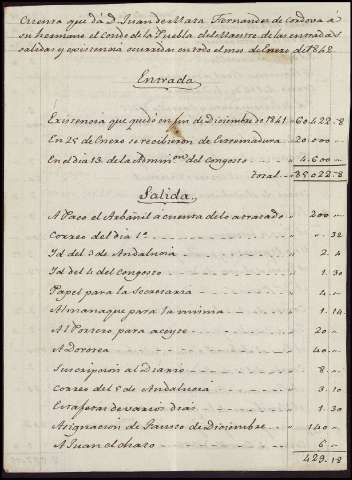 Cuenta que dá D. Juan de Mata Fernandez de Cordova á
su hermano el Conde de la Puebla del Maestre de las entradas
salidas y existencia ocurridas en todo el mes de Enero de 1842
Entrada
Existencia que quedó en fin de Diciembre de 1841 " 60422..8
En 25 de Enero se recibieron de Estremadura 20000..
En el dia 13 de la Admin.on del Congosto " 4.600..
total 85022..8
Salida
A Paco el Arbañil a cuenta de lo atrasado " 200
Correo del dia 1.º " " .. 32
Yd del 3 de Andalucia " 2.. 4
Yd del 4 del Congosto " 1.. 30
Papel para la Secretaria " 4..
Almanaque para la misma " 1.. 14
Al Portero para aceyte " 20
A Dorotea " 40
Suscripcion al Diario " 8
Correo del 5 de Andalucia " 3.. 10
Estafetas de varios dias " 1.. 30
Asignacion de Fausto de Diciembre " 140
A Juan el chato " 6
429.18